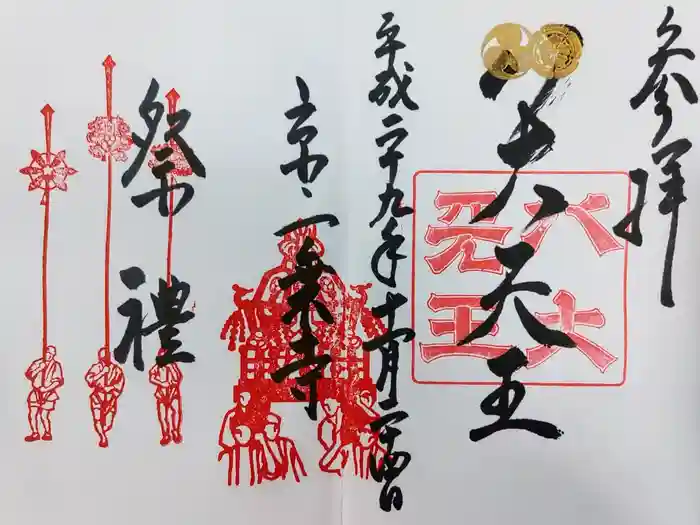 参拝
八大天王
八大
天王
平成二十九年十一月二十四日
京・一乗寺
祭禮